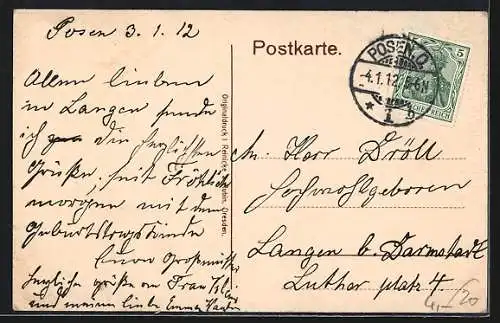 Posen 3.1.12
Allen lieben
in Langen sende
ich die herzlichsten
Grüße, seit Fröhlich
morgen mit dem
Geburtstagskinde
Eure Großmutter
herzliche grüße an Frau
und meine liebe Emma
Postkarte.
POSEN O.
-4.1.12. 5-6N
* 1 b
5
DEUTSCHES REICH
Originaldruck Reinicke & Rubin, Dresden.
An Herr Dröll
Hochwohlgeboren
Langen b. Darmstadt
Luther platz 4